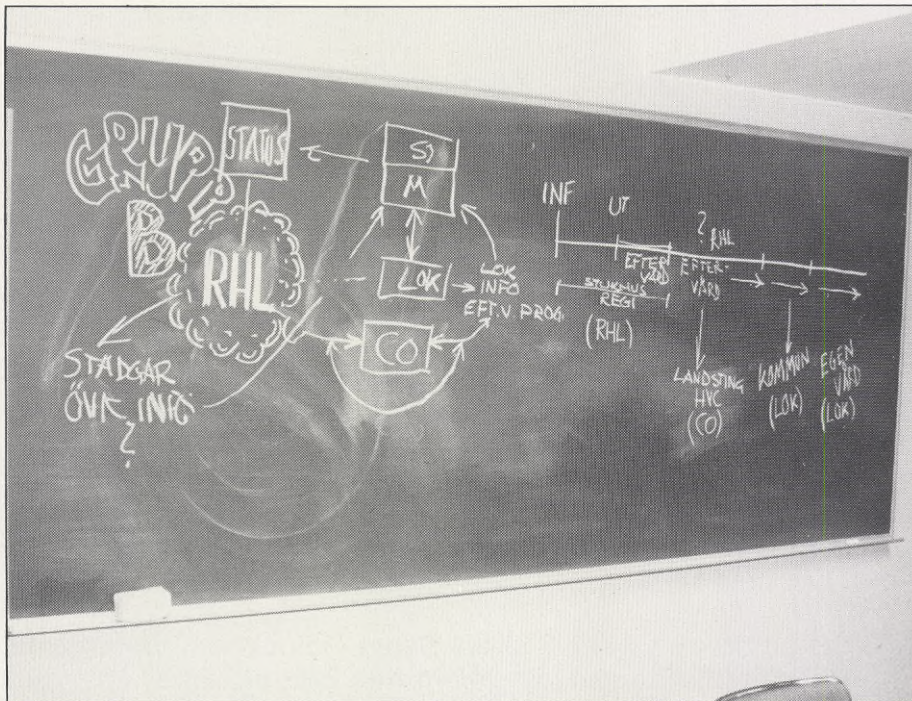 GRUPP
B
STATUS
RHL
STADGAR
ÖVR. INFO
?
M
LOK
CO
LOK
INFO
EFT.V PROG.
INF
UT
?
RHL
EFTER
VÅRD
EFTER-
VÅRD
SJUKHUS
REGI
(RHL)
LANDSTING
HVC
(CO)
KOMMUN
(LOK)
EGEN
VÅRD
(LOK)